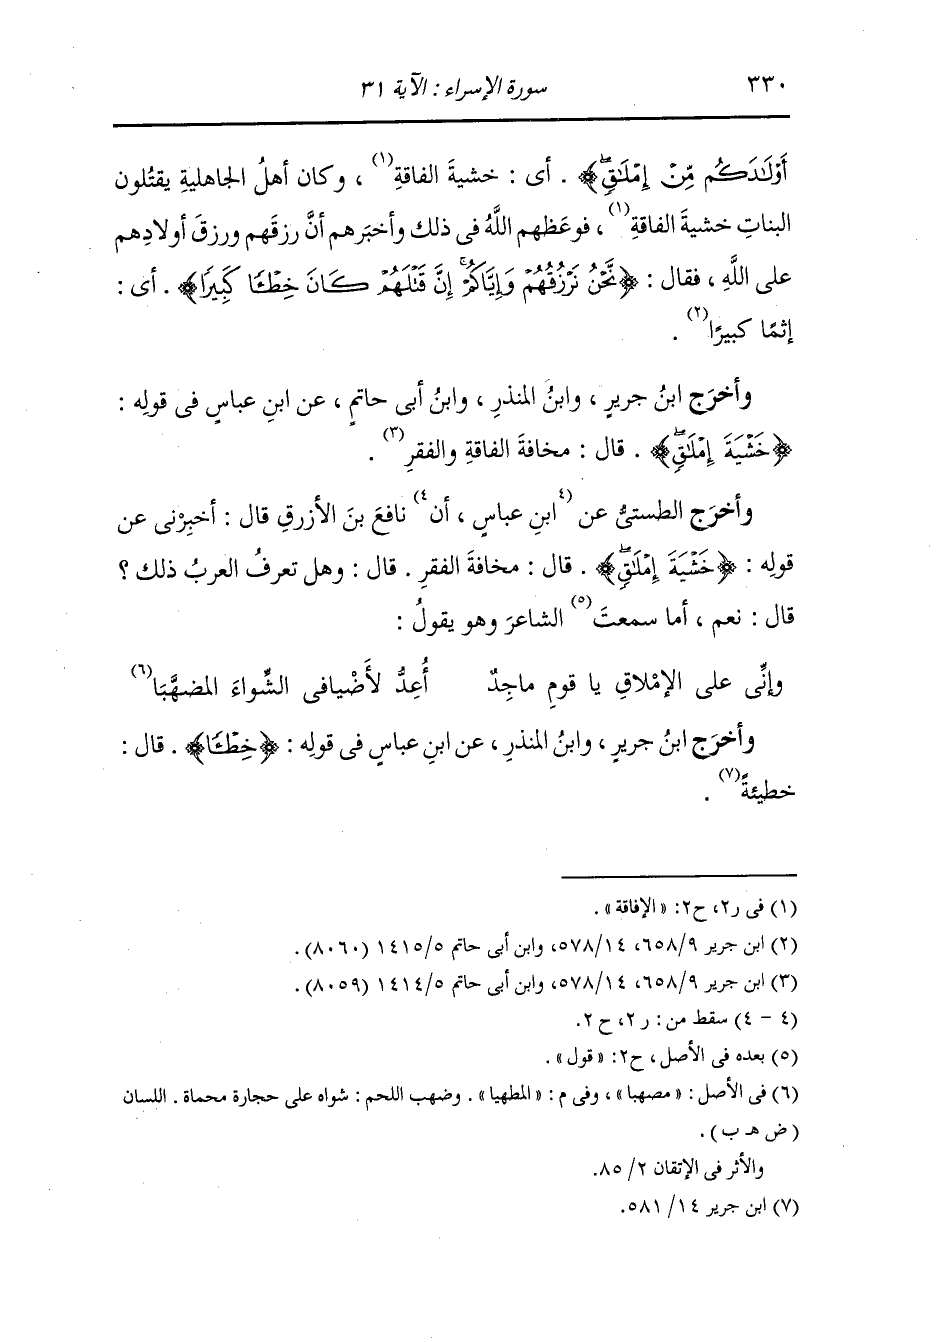 ٣٣٠
سورة الإسراء : الآية ٣١
أَوْلَٰدَكُم مِّنْ إِمْلَٰقٍ﴾ . أى : خشيةَ الفاقةِ(١) ، وكان أهلُ الجاهليةِ يقتُلون
البناتِ خشيةَ الفاقةِ(١) ، فوعَظهم اللَّهُ فى ذلك وأخبَرهم أنَّ رزقَهم ورزقَ أولادِهم
على اللَّهِ ، فقال : ﴿نَّحْنُ نَرْزُقُهُمْ وَإِيَّاكُمْ إِنَّ قَتْلَهُمْ كَانَ خِطْـًٔا كَبِيرًا﴾ . أى :
إثمًا كبيرًا(٢) .
وأخرَج ابنُ جريرٍ ، وابنُ المنذرِ ، وابنُ أبى حاتمٍ ، عن ابنِ عباسٍ فى قولِه :
﴿خَشْيَةَ إِمْلَٰقٍ﴾ . قال : مخافةَ الفاقةِ والفقرِ(٣) .
وأخرَج الطستىُّ عن (٤)ابنِ عباسٍ ، أن(٤) نافعَ بنَ الأزرقِ قال : أخبِرْنى عن
قولِه : ﴿خَشْيَةَ إِمْلَٰقٍ﴾ . قال : مخافةَ الفقرِ . قال : وهل تعرفُ العربُ ذلك ؟
قال : نعم ، أما سمعتَ(٥) الشاعرَ وهو يقولُ :
وإنِّى على الإمْلاقِ يا قومِ ماجِدٌ أُعِدُّ لأَضْيافى الشِّواءَ المضهَّبَا(٦)
وأخرَج ابنُ جريرٍ ، وابنُ المنذرِ ، عن ابنِ عباسٍ فى قولِه : ﴿خِطْـًٔا﴾ . قال :
خطيئةً(٧) .
(١) فى ر٢، ح٢: «الإفاقة» .
(٢) ابن جرير ٩/ ٦٥٨، ١٤/ ٥٧٨، وابن أبى حاتم ٥/ ١٤١٥ (٨٠٦٠) .
(٣) ابن جرير ٩/ ٦٥٨، ١٤/ ٥٧٨، وابن أبى حاتم ٥/ ١٤١٤ (٨٠٥٩) .
(٤ - ٤) سقط من : ر ٢، ح ٢.
(٥) بعده فى الأصل ، ح٢: «قول» .
(٦) فى الأصل : «مصهبا» ، وفى م : «المطهيا» . وضهب اللحم : شواه على حجارة محماة . اللسان
(ض هـ ب) .
والأثر فى الإتقان ٢/ ٨٥.
(٧) ابن جرير ١٤/ ٥٨١.